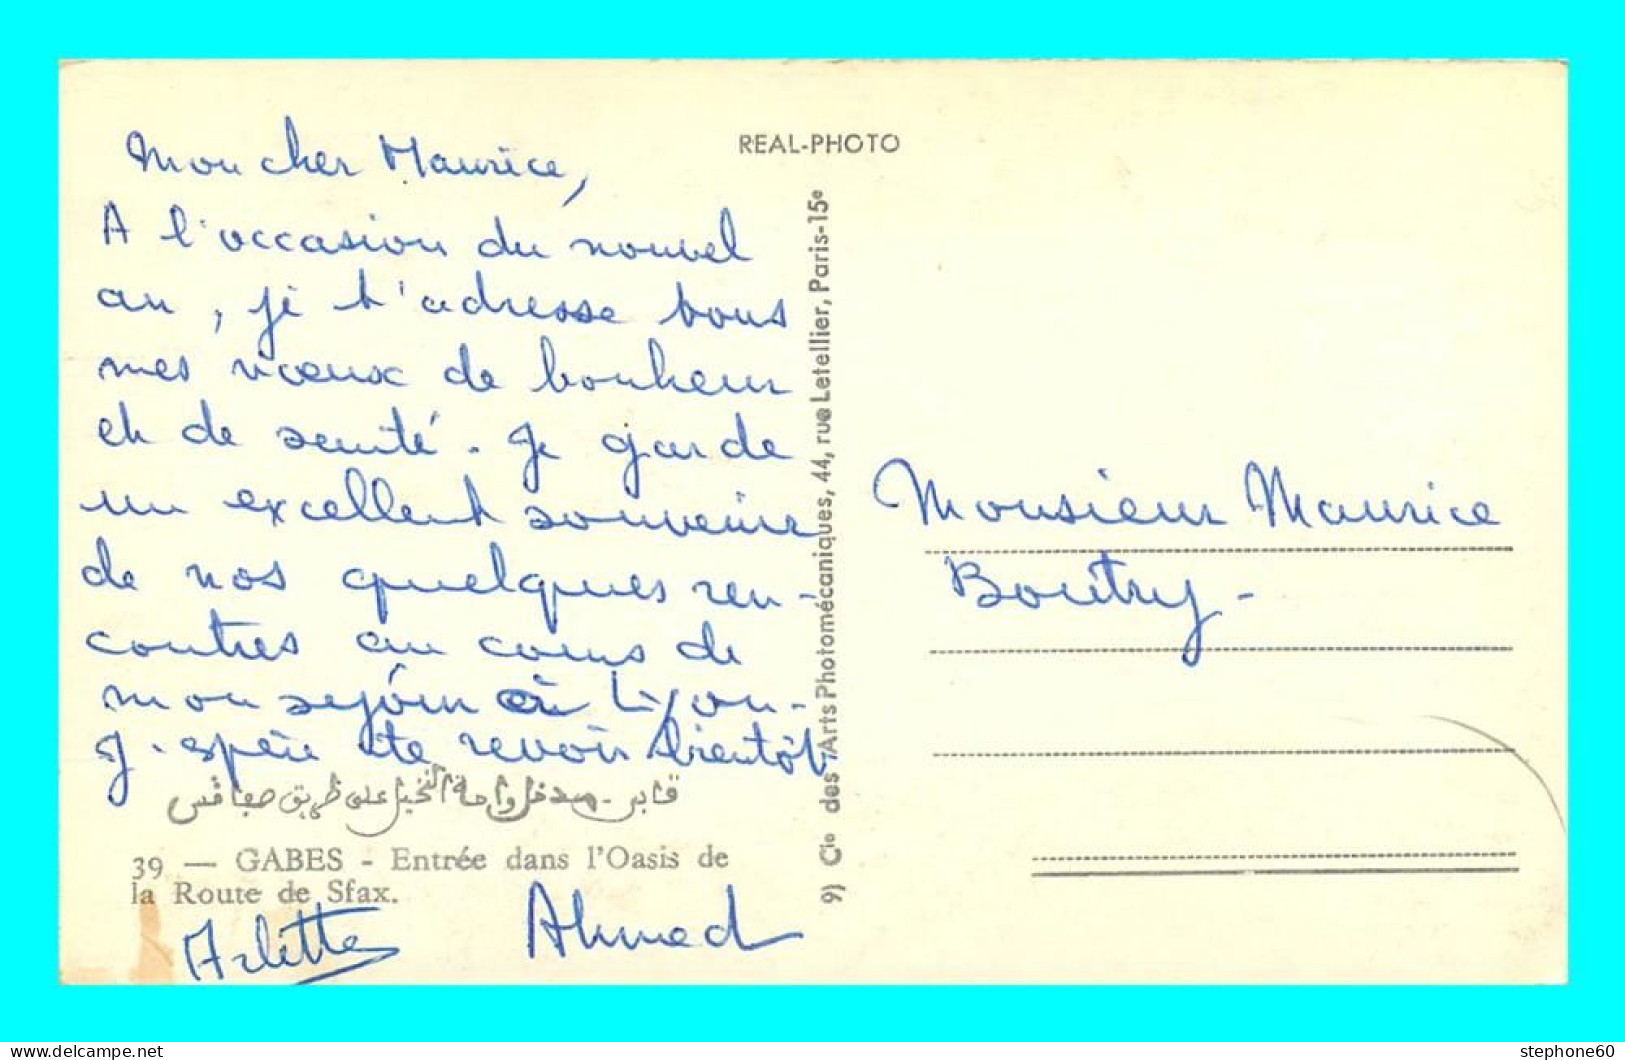 Mon cher Maurice,
A l'occasion du nouvel
an, je t'adresse tous
mes voeux de bonheur
et de santé. Je garde
un excellent souvenir
de nos quelques ren-
contres au cours de
mon sejour à Lyon-
J'espère te revoir bientôt
قابس - مدخل واحة النخيل على طريق صفاقس
39 — GABES - Entrée dans l'Oasis de
la Route de Sfax.
Arlette Ahmed
REAL-PHOTO
9) Cie des Arts Photomécaniques, 44, rue Letellier, Paris-15e
Monsieur Maurice
Boutry-
www.delcampe.net
stephone60